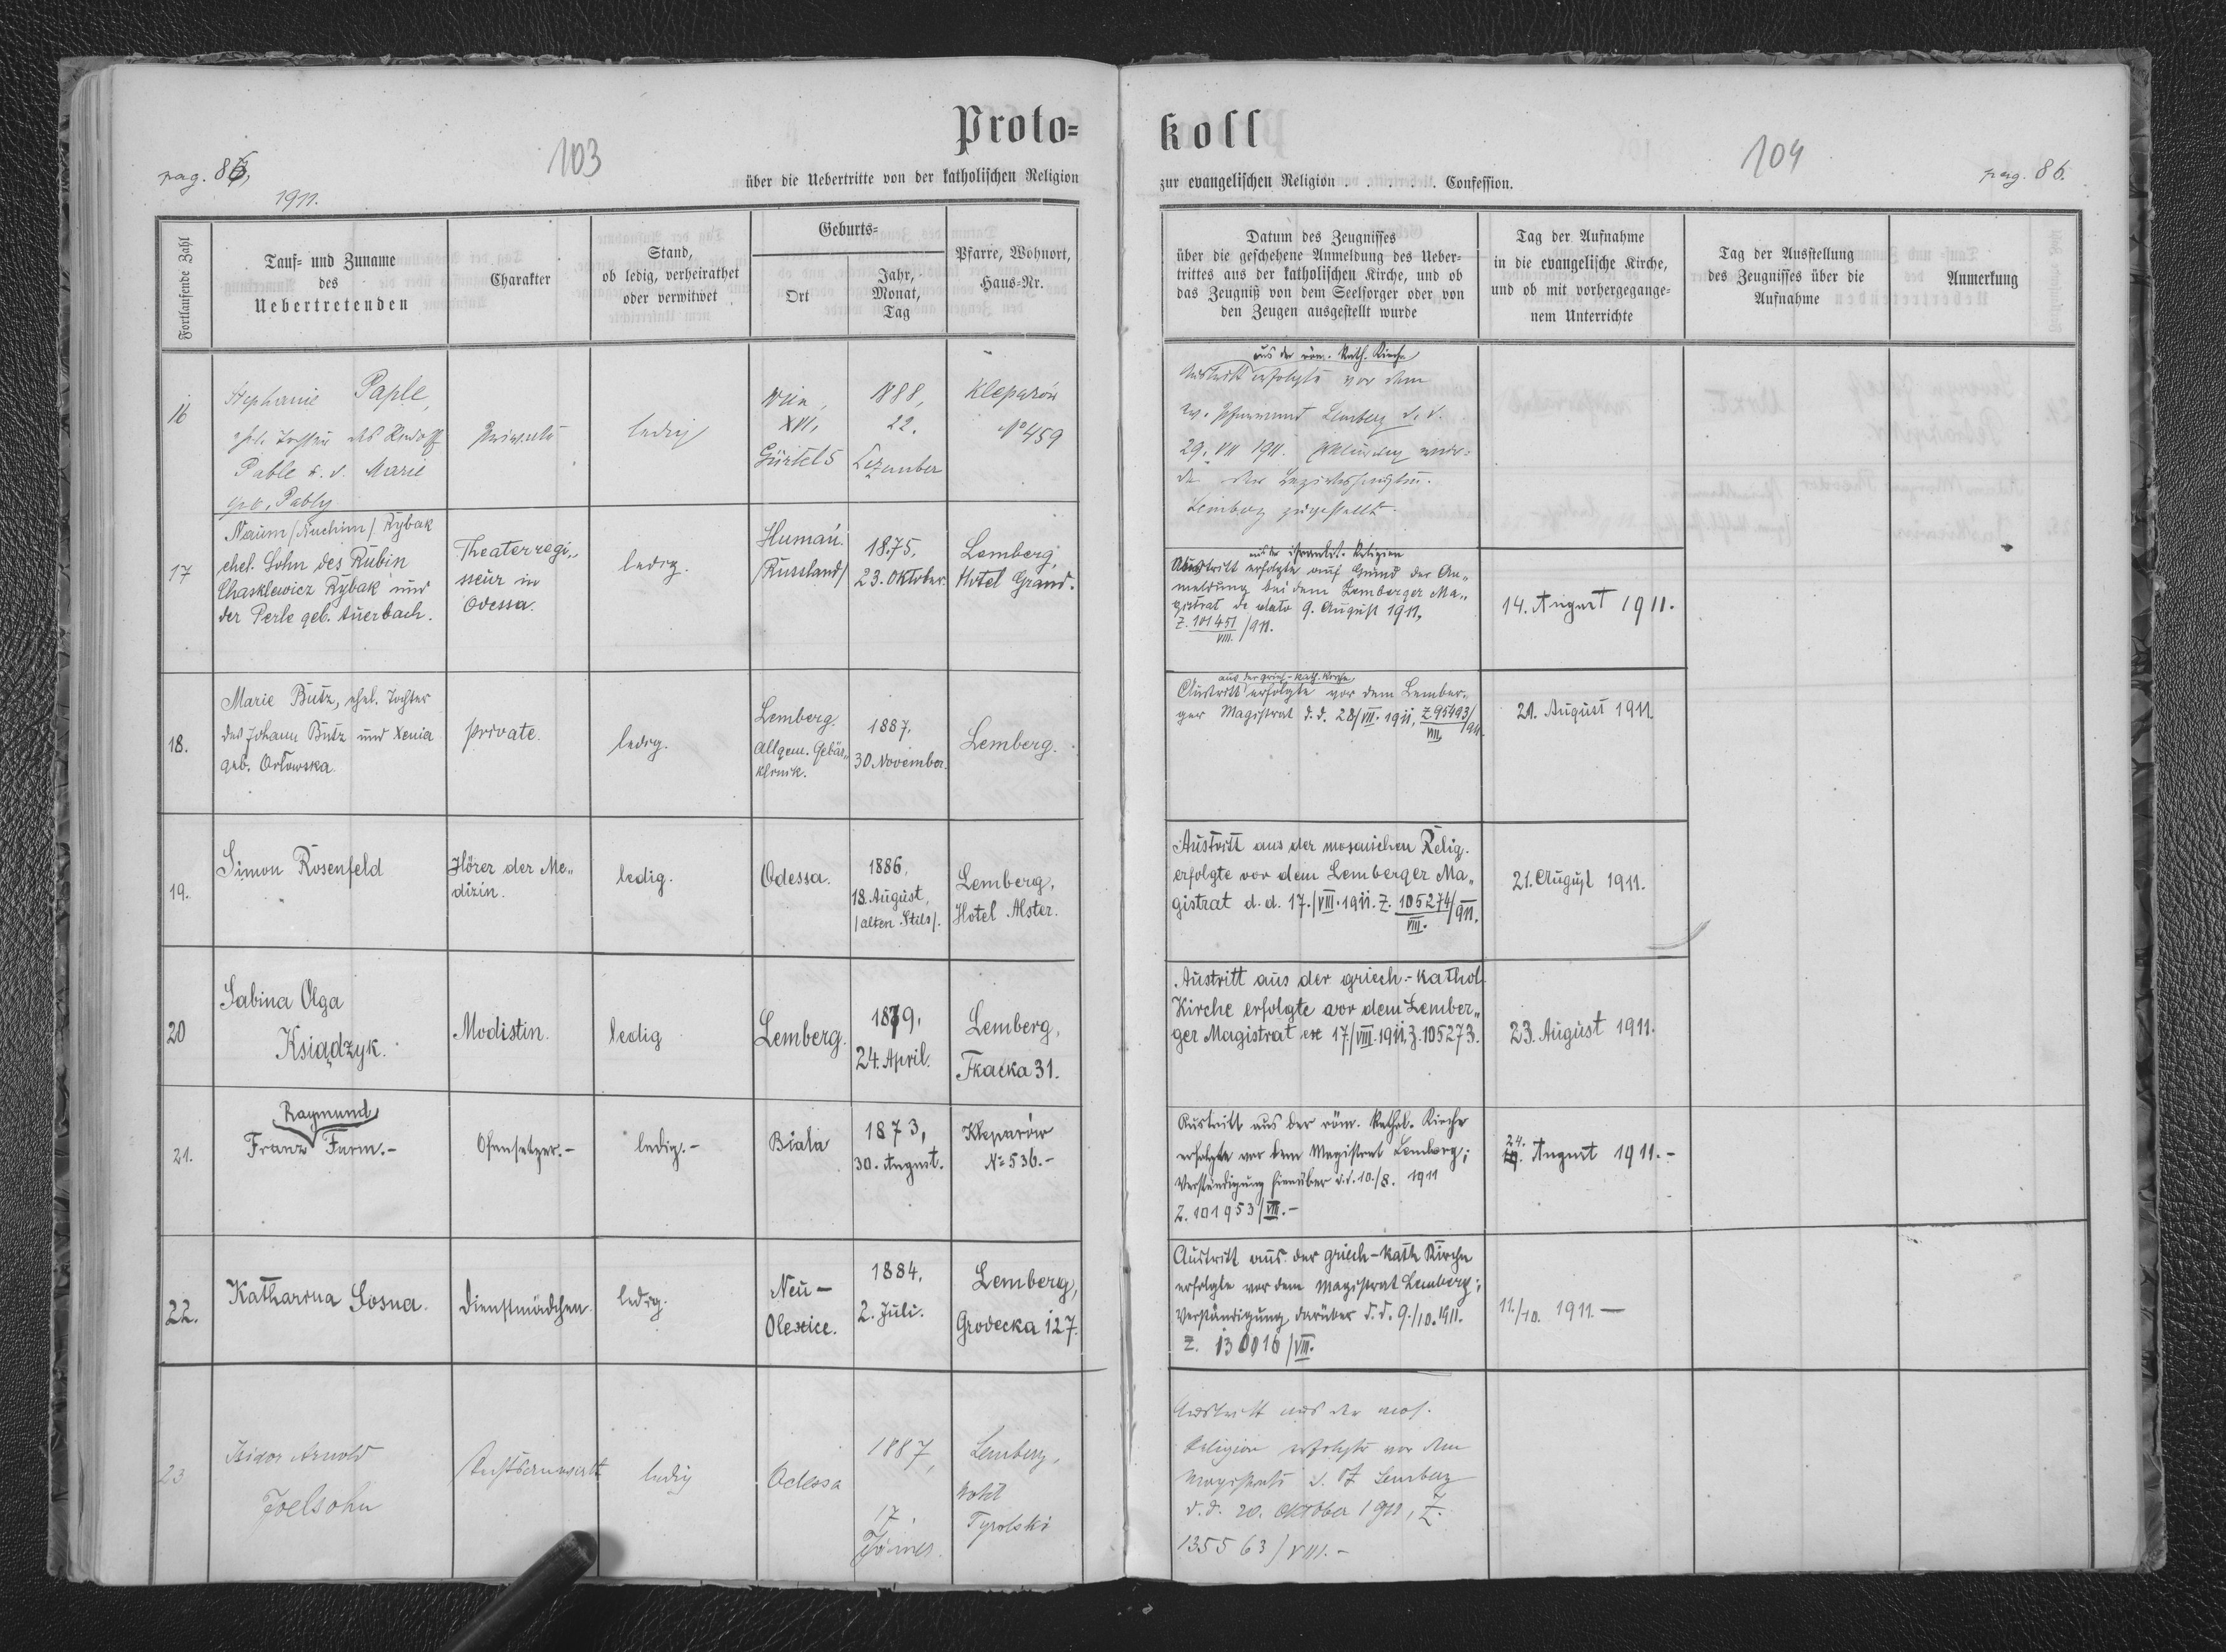 Proto=
koll
103
104
pag. 86,
pag. 86.
1911.
über die Uebertritte von der katholischen Religion
zur evangelischen Religion . . . . . . Confession.
Fortlaufende Zahl
Tauf= und Zuname
des
Uebertretenden
Charakter
Stand,
ob ledig, verheirathet
oder verwitwet
Geburts=
Ort
Jahr,
Monat,
Tag
Pfarre, Wohnort,
Haus=Nr.
Datum des Zeugnisses
über die geschehene Anmeldung des Ueber=
trittes aus der katholischen Kirche, und ob
das Zeugniß von dem Seelsorger oder von
den Zeugen ausgestellt wurde
Tag der Aufnahme
in die evangelische Kirche,
und ob mit vorhergegange=
nem Unterrichte
Tag der Ausstellung
des Zeugnisses über die
Aufnahme
Anmerkung
16
Stephanie Paple,
ehel. Tochter des Rudolf
Pable u. d. Marie
geb. Pably
Private
ledig
Wien,
XVI,
Gürtel 5
1888,
22.
Dezember
Kleparów
No 459
aus der röm. Kath. Kirche
Austritt erfolgte vor dem
ev. Pfarramt Lemberg d. d.
29. VII 1911.
Lemberg zugestellt.
17
Naum /Nuchim/ Rybak
ehel. Sohn des Rubin
Chasklewicz Rybak und
der Perle geb. Auerbach.
Theaterregi„
sseur in
Odessa.
ledig.
Human.
/Russland/
1875.
23. Oktober.
Lemberg,
Hotel Grand.
aus der israelit. Religion
Austritt erfolgte auf Grund der An„
meldung bei dem Lemberger Ma„
gistrat de dato 9. August 1911,
Z. 101451/VIII. /911.
14. August 1911.
18.
Marie Butz, ehel. Tochter
des Johann Butz und Xenia
geb. Orłowska.
private.
ledig.
Lemberg.
Allgem. Gebär„
klinik.
1887.
30 November.
Lemberg.
aus der griech-kath. Kirche
Austritt erfolgte vor dem Lember„
ger Magistrat d. d. 28/VII. 1911, Z 95493/VIII /911.
21. August 1911.
19.
Simon Rosenfeld
Hörer der Me„
dizin.
ledig.
Odessa.
1886,
18. August,
/alten Stils/.
Lemberg,
Hotel Alster.
Austritt aus der mosaischen Relig.
erfolgte vor dem Lemberger Ma„
gistrat d. d. 17./VIII. 1911. Z. 105274/VIII. /911.
21. August 1911.
20
Sabina Olga
Ksiądzyk.
Modistin.
ledig
Lemberg.
1879,
24. April.
Lemberg,
Tkacka 31.
Austritt aus der griech.-kathol.
Kirche erfolgte vor dem Lember„
ger Magistrat ex 17./VIII. 1911, Z. 105273.
23. August 1911.
21.
Raymund
Franz Furm.-
Ofensetzer.-
ledig.-
Biała
1873,
30. August.
Kleparów
No 536.-
Austritt aus der röm. Kathol. Kirche
erfolgte vor dem Magistrat Lemberg;
Verständigung hierüber d. d. 10./8. 1911
Z. 101953/VIII.-
24. August 1911.-
22.
Katharina Sosna.
Dienstmädchen.
ledig.
Neu-
Oleszice.
1884,
2. Juli.
Lemberg,
Grodecka 127.
Austritt aus der griech-kath Kirche
erfolgte vor dem Magistrat Lemberg;
Verständigung darüber d. d. 9./10. 1911.
Z. 130016/VIII.
11./10. 1911.-
23
Isidor Arnold
Joelsohn
Rechtsanwalt
ledig
Odessa
1887,
17.
Jänner.
Lemberg,
Hotel
Tyrolski
Austritt aus der mos.
Religion erfolgte vor dem
Magistrate d. St Lemberg
d. d. 20. Oktober 1911, Z.
135563/VIII.-